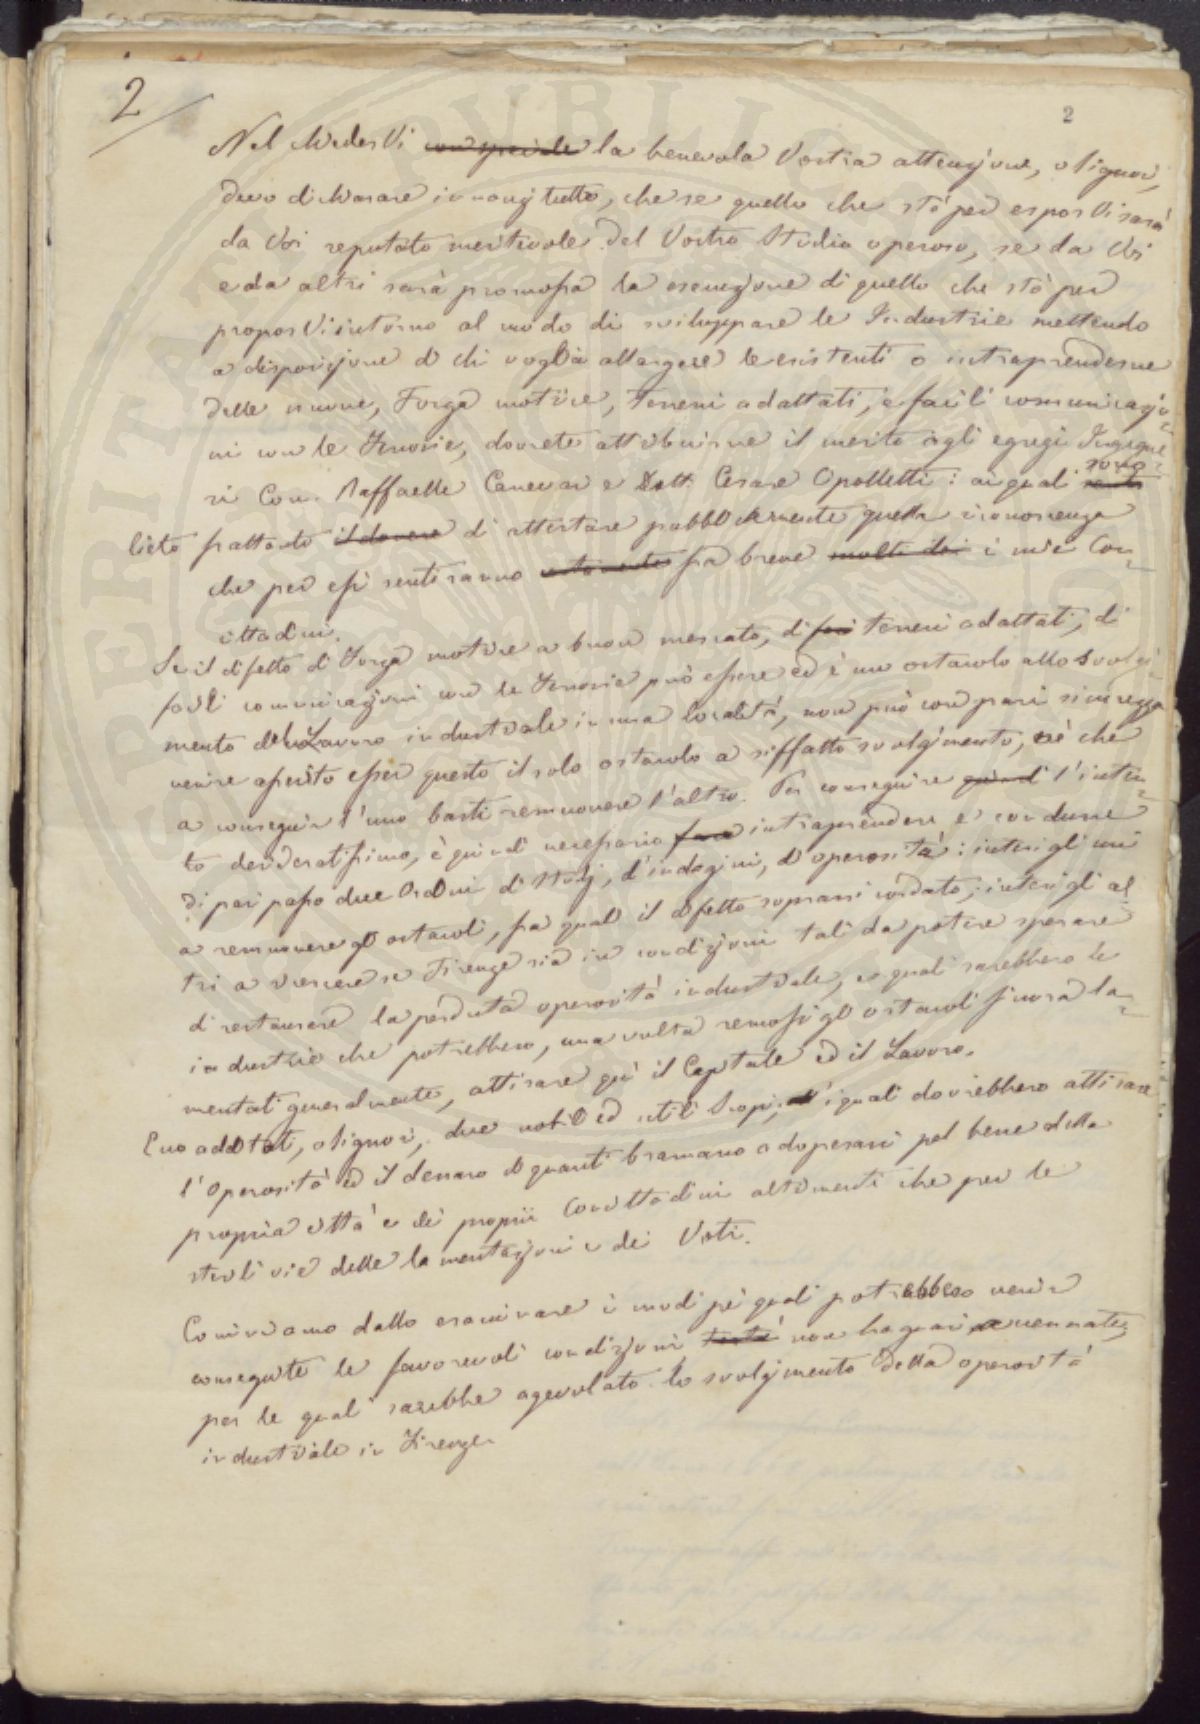 2
2
Nel chiedervi con speciale la benevola Vostra attenzione, o Signori,
devo dichiarare innanzitutto, che se quello che stò per esporvi sarà
da Voi reputato meritevole del Vostro Studio operoso, se da Voi
e da altri sarà promossa la esecuzione di quello che stò per
proporvi intorno al modo di sviluppare le Industrie mettendo
a disposizione di chi voglia allargare le esistenti o intraprenderne
delle nuove, Forza motrice, terreni adattati, e facili comunicazio=
ni con le Ferrovie, dovrete attribuirne il merito agli egregi Ingegne=
ri Com. Raffaelle Canevari e Dott. Cesare Opolletti: ai quali
sono
lieto frattanto il dovere di attestare pubblicamente quella riconoscenza
che per essi sentiranno fra breve molti dei i miei Con=
cittadini.
Se il difetto di Forza motrice a buon mercato, di terreni adattati, di
facili comunicazioni con le Ferrovie può essere ed è un ostacolo allo Svolgi=
mento del Lavoro industriale in una località, non può con pari sicurezza
venire asserito esser questo il solo ostacolo a siffatto svolgimento, nè che
a conseguir l'uno basti remuovere l'altro. Per conseguire quindi l'inten=
to desideratissimo, è quindi necessario fare intraprendere e condurre
di pari passo due Ordini di Studj, d'indagini, d'operosità: intesi gli uni
a remuovere gli ostacoli, fra quali il difetto soprari cordato; intesi gli al=
tri a vedere se Firenze sia in condizioni tali da potere sperare
di restaurare la perduta operosità industriale, e quali sarebbero le
industrie che potrebbero, una volta remossi gli ostacoli finora la=
mentati generalmente, attirare quì il Capitale ed il Lavoro.
Eccovi additati, o Signori, due nobili ed utili Scopi, i quali dovrebbero attirare
l'operosità ed il denaro di quanti bramano adoperarsi pel bene della
propria città e dei proprii Concittadini altrimenti che per le
sterili vie delle lamentazioni e dei Voti.
Cominciamo dallo esaminare i modi pei quali potrebbero venir
conseguite le favorevoli condizioni testè non ha guari accennate,
per le quali sarebbe agevolato lo svolgimento della operosità
industriale in Firenze.